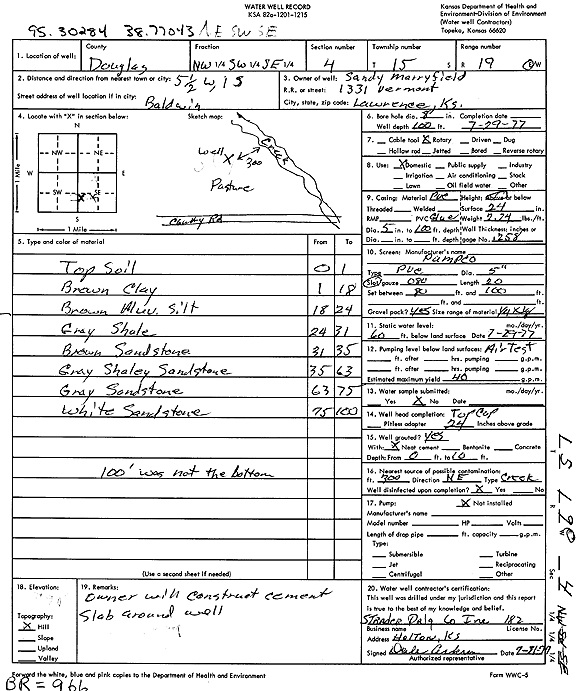 WATER WELL RECORD
KSA 82a-1201-1215
Kansas Department of Health and
Environment-Division of Environment
(Water well Contractors)
Topeka, Kansas 66620
95.30284 38.77043 NE SW SE
1. Location of well: County Douglas Fraction NW 1/4 SW 1/4 SE 1/4 Section number 4 Township number T 15 S Range number R 19 E/W
2. Distance and direction from nearest town or city: 5 1/2 W, 1 S
Street address of well location if in city: Baldwin
3. Owner of well: Sandy Merryfield
R.R. or street: 1331 Vermont
City, state, zip code: Lawrence, Ks.
4. Locate with "X" in section below:
Sketch map:
N
NW NE
W E
SW SE
S
1 Mile
1 Mile
Well X 300 Creek
Pasture
Country Rd
6. Bore hole dia. 8 in. Completion date
Well depth 100 ft. 7-29-77
7. Cable tool X Rotary Driven Dug
Hollow rod Jetted Bored Reverse rotary
8. Use: X Domestic Public supply Industry
Irrigation Air conditioning Stock
Lawn Oil field water Other
9. Casing: Material PVC Height: Above or below
Threaded Welded Surface 24 in.
RMP PVC Glue Weight 2.74 lbs./ft.
Dia. 5 in. to 100 ft. depth Wall Thickness: inches or
Dia. in. to ft. depth gage No. .258
10. Screen: Manufacturer's name
Pumpco
Type PVC Dia. 5"
Slot/gauze .080 Length 20
Set between 80 ft. and 100 ft.
ft. and ft.
Gravel pack? yes Size range of material 1/4 x 1/4
11. Static water level: mo./day/yr.
60 ft. below land surface Date 7-29-77
12. Pumping level below land surfaces: Air Test
ft. after hrs. pumping g.p.m.
ft. after hrs. pumping g.p.m.
Estimated maximum yield 40 g.p.m.
13. Water sample submitted: mo./day/yr.
Yes X No Date
14. Well head completion: Top Cap
Pitless adapter 24 Inches above grade
15. Well grouted? yes
With: X Neat cement Bentonite Concrete
Depth: From 0 ft. to 10 ft.
16. Nearest source of possible contamination:
ft. 300 Direction NE Type Creek
Well disinfected upon completion? X Yes No
17. Pump: X Not installed
Manufacturer's name
Model number HP Volts
Length of drop pipe ft. capacity g.p.m.
Type:
Submersible Turbine
Jet Reciprocating
Centrifugal Other
5. Type and color of material From To
Top Soil 0 1
Brown Clay 1 18
Brown Alluv. Silt 18 24
Gray Shale 24 31
Brown Sandstone 31 35
Gray Shaley Sandstone 35 63
Gray Sandstone 63 75
White Sandstone 75 100
100' was not the bottom
(Use a second sheet if needed)
18. Elevation:
Topography:
X Hill
Slope
Upland
Valley
19. Remarks:
Owner will construct cement
slab around well
20. Water well contractor's certification:
This well was drilled under my jurisdiction and this report
is true to the best of my knowledge and belief.
Strader Drlg Co Inc 182
Business name License No.
Address Holton, Ks
Signed 7-31-77
Authorized representative
Forward the white, blue and pink copies to the Department of Health and Environment
Form WWC-5
BR = 966